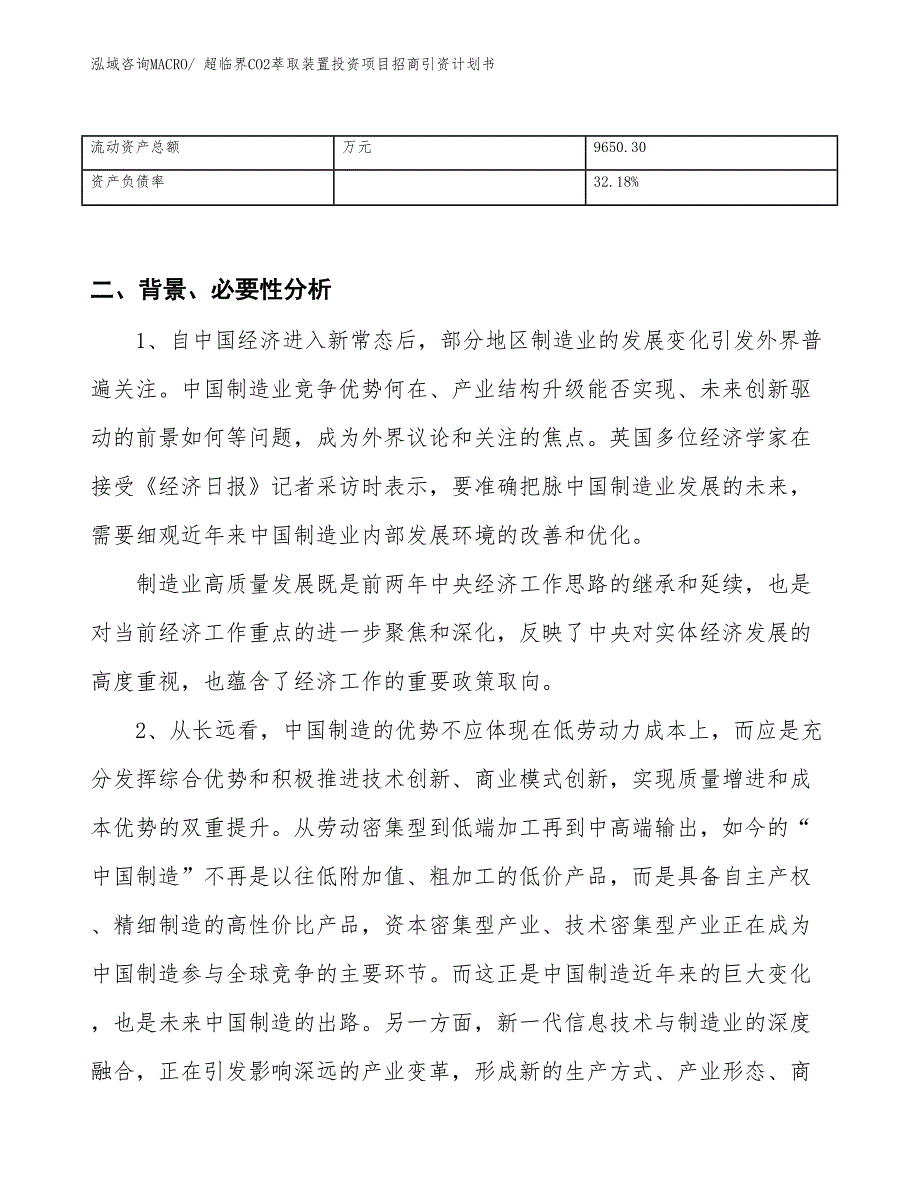 泓域咨询MACRO/ 超临界CO2萃取装置投资项目招商引资计划书
流动资产总额 万元 9650.30
资产负债率 32.18%
二、背景、必要性分析
1、自中国经济进入新常态后，部分地区制造业的发展变化引发外界普
遍关注。中国制造业竞争优势何在、产业结构升级能否实现、未来创新驱
动的前景如何等问题，成为外界议论和关注的焦点。英国多位经济学家在
接受《经济日报》记者采访时表示，要准确把脉中国制造业发展的未来，
需要细观近年来中国制造业内部发展环境的改善和优化。
制造业高质量发展既是前两年中央经济工作思路的继承和延续，也是
对当前经济工作重点的进一步聚焦和深化，反映了中央对实体经济发展的
高度重视，也蕴含了经济工作的重要政策取向。
2、从长远看，中国制造的优势不应体现在低劳动力成本上，而应是充
分发挥综合优势和积极推进技术创新、商业模式创新，实现质量增进和成
本优势的双重提升。从劳动密集型到低端加工再到中高端输出，如今的“
中国制造”不再是以往低附加值、粗加工的低价产品，而是具备自主产权
、精细制造的高性价比产品，资本密集型产业、技术密集型产业正在成为
中国制造参与全球竞争的主要环节。而这正是中国制造近年来的巨大变化
，也是未来中国制造的出路。另一方面，新一代信息技术与制造业的深度
融合，正在引发影响深远的产业变革，形成新的生产方式、产业形态、商